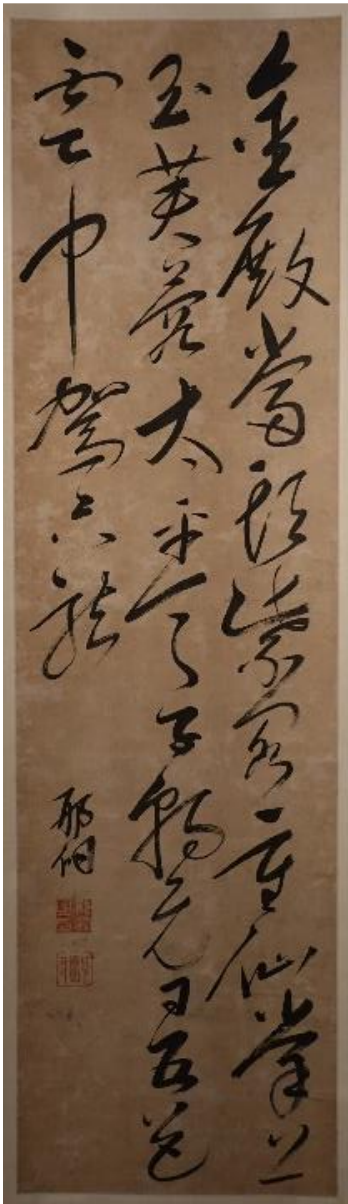 金殿當頭紫閣重仙掌上
玉芙蓉太平天子朝元日五色
雲中駕六龍
邢侗